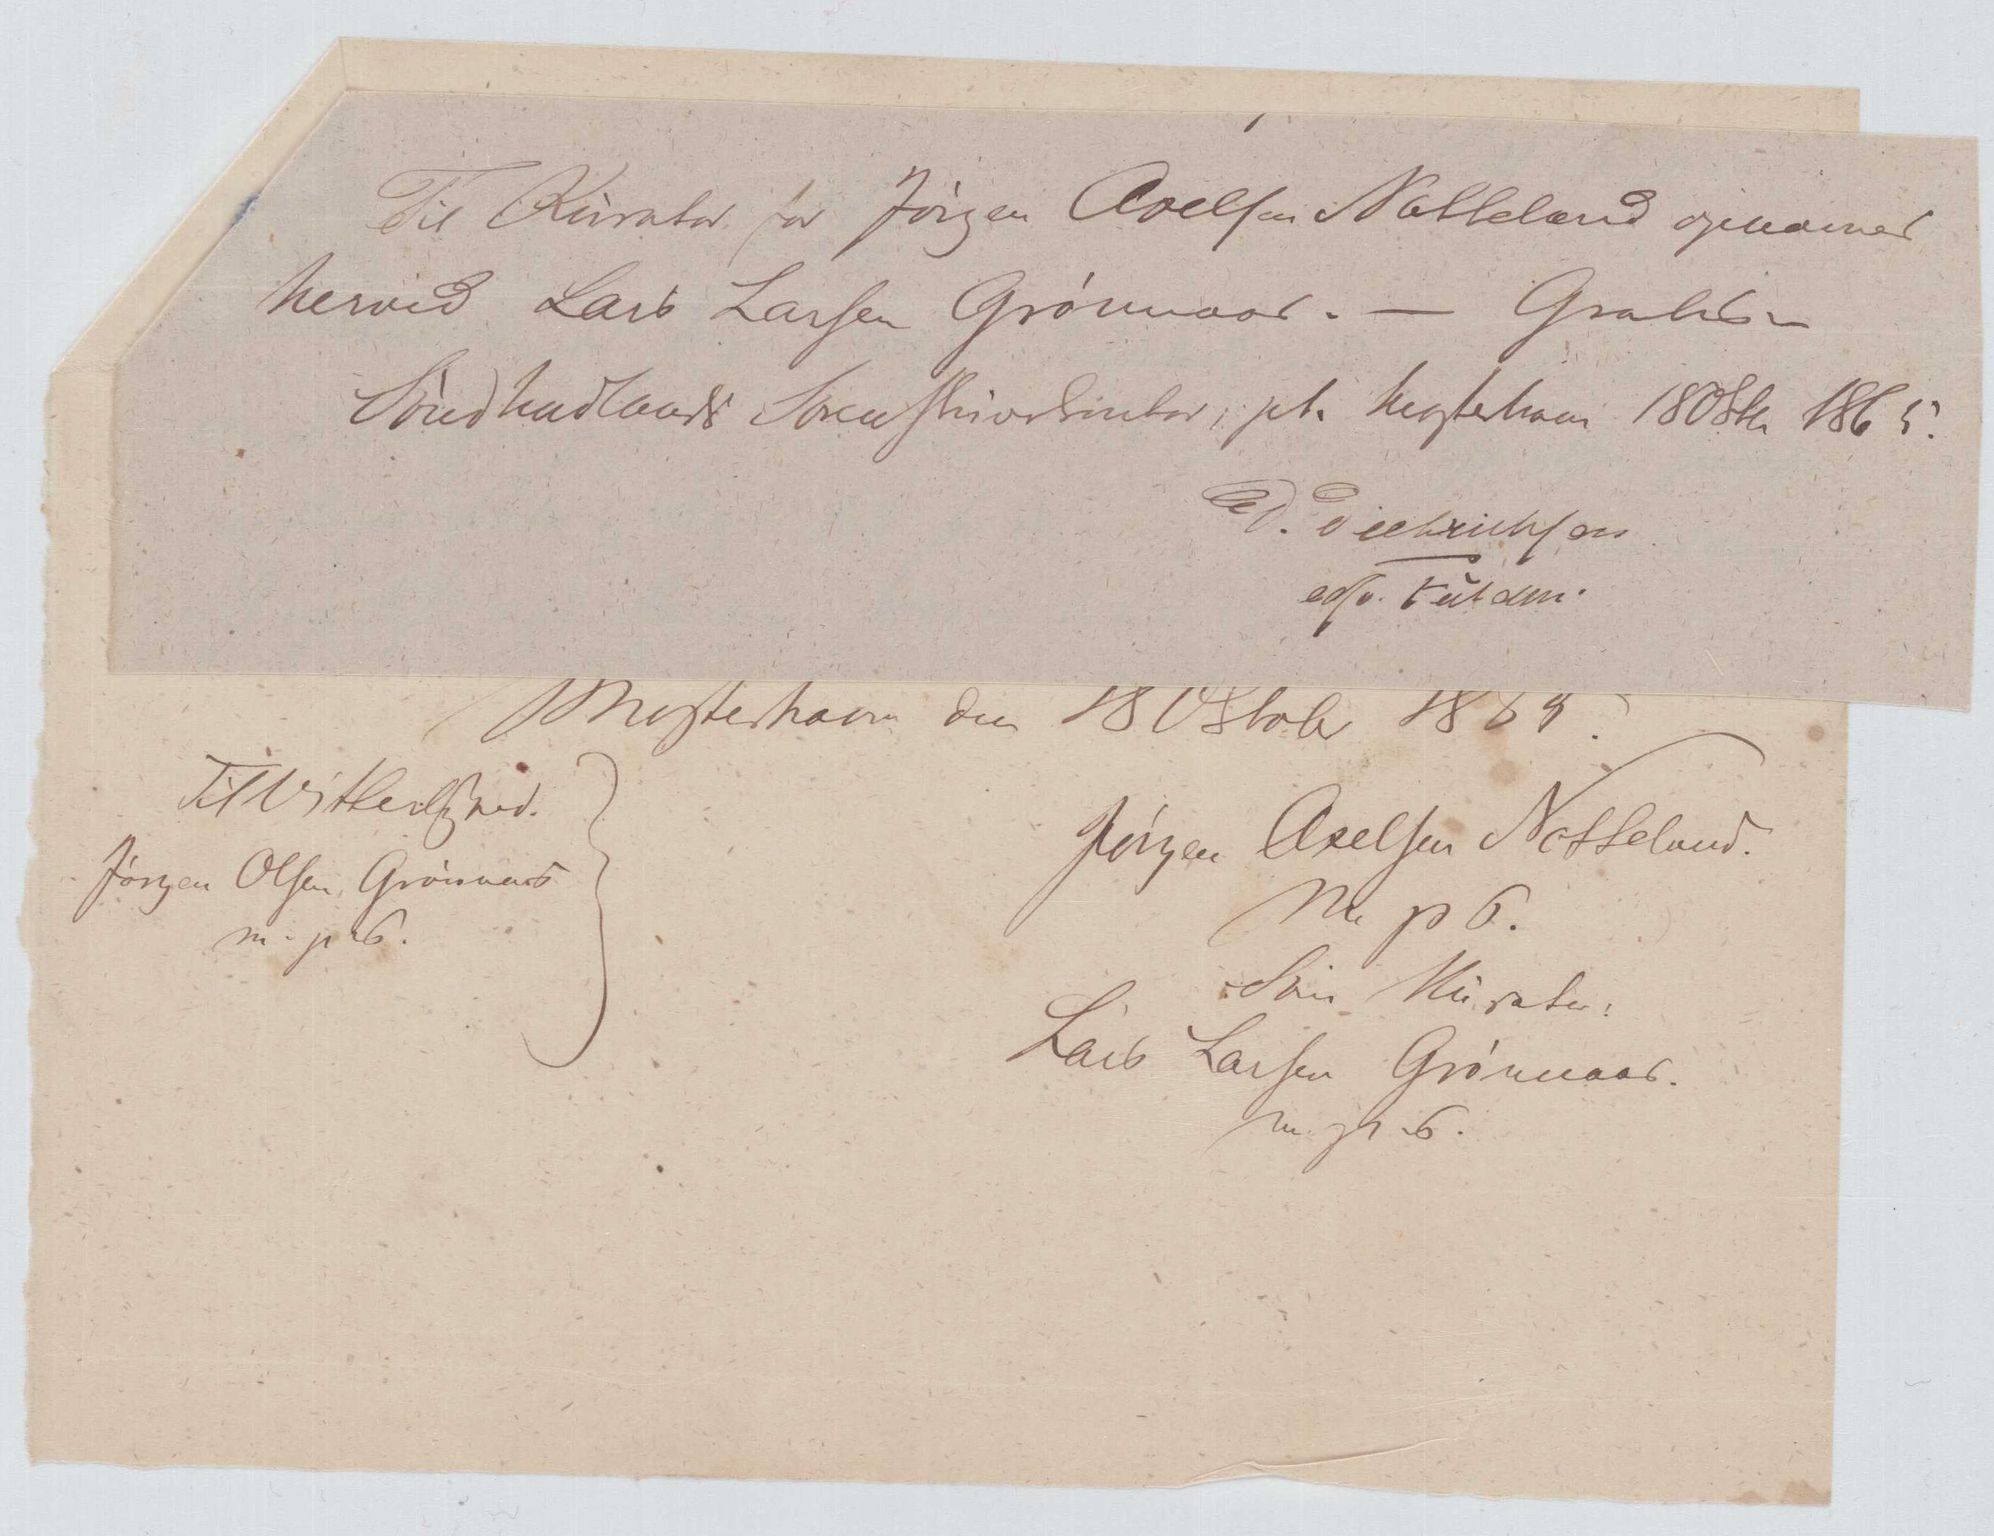 Til Kurator for Jörgen Axelsen Natteland opnævnes
herved Lars Larsen Grönnaas. — Gratis –
Söndhordlands Sorenskriverkontor, pt. Mosterhavn 18 Oktbr 1865.
Ed. Diethrichsen
edsv. Fuldm.
Mosterhavn den 18 Oktober 1865.
Til Vitterlighed.
Jörgen Olsen Grönnaas
m. p. s.
Jörgen Axelsen Natteland.
M p S.
Som Kurator:
Lars Larsen Grönnaas.
m. p. s.